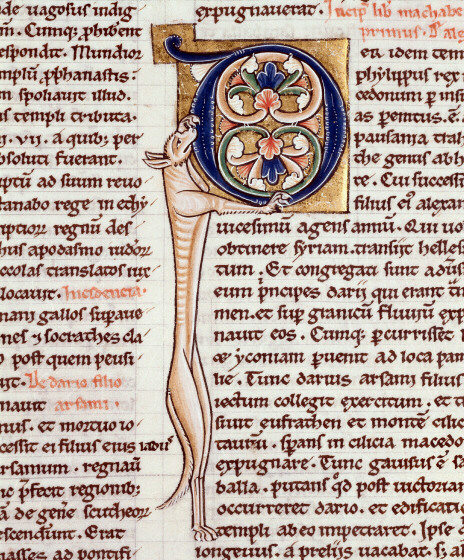 de uagosus indig
m. Cumq; phibent
espondit. Mundior
templū pphanastis.
m spoliauit illud.
us templi tributa.
.vii. a quib; per
bsoluti fuerant.
iptū ad suum reuo
tanabo rege in echy
iptior regnū des
hus apodasmo iudeor
accolas translatos iux
locauit. Incidencia.
mani gallos supaue
nes 7 socrathes cla
o post quem peusi
it. De dario filio
nauit arsami.
nus. et mortuo io
cessit ei filius eius iaduſ
arsamum. regnaū
inc pfecit regionib;
a de geñe scutheor
escendunt. Erat
nasses. ad pontifi
expugnauerat. Incip lib machabe
primus. D' alg
eti idem tem
phylippus rex
cedonum p insi
as pemtus. ē.
pausania. tra
che genus abh
te. Cui successit
filius ei alexan
uicesimū agens annū. Qui uo
obtinere syriam. transijt hellest
tum. Et congregati sunt adūs
eum pincipes darij qui erant in
men. et sup granicū fluuiū exp
nauit eos. Cumq; pcurrisset
& yconiam puenit ad loca pan
lie. Tunc darius arsami filius
iectum collegit exercitum. et t
siuit eufrathen et montē cilic
taurū. spans in cilicia macedo
expugnare. Tunc gauisus ē sa
balla. putans qd post uictoriam
occurreret dario. et edificati
templi ab eo impetraret. Ipse
longeuus. a prelijs uacabat. s;